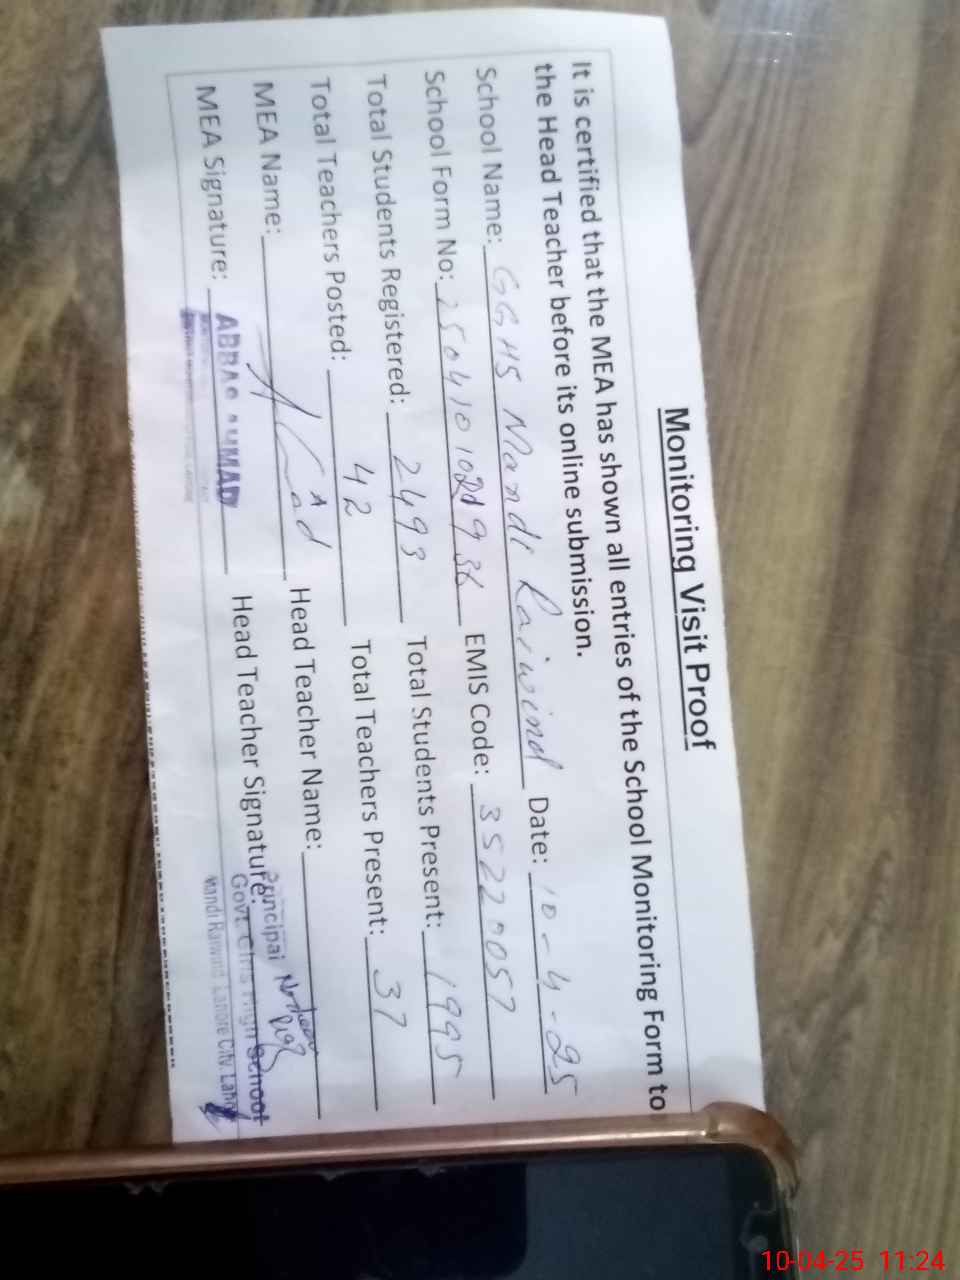 Monitoring Visit Proof
It is certified that the MEA has shown all entries of the School Monitoring Form to
the Head Teacher before its online submission.
School Name: GGHS Mandi Raiwind Date: 10-4-25
School Form No: EMIS Code: 35220057
Total Students Registered: 2493 Total Students Present: 1995
Total Teachers Posted: 42 Total Teachers Present: 37
MEA Name: Head Teacher Name:
MEA Signature: ABBAS AHMAD Head Teacher Signature:
Principal
Govt. Girls High School
Mandi Raiwind Lahore City. Lahore
10-04-25 11:24